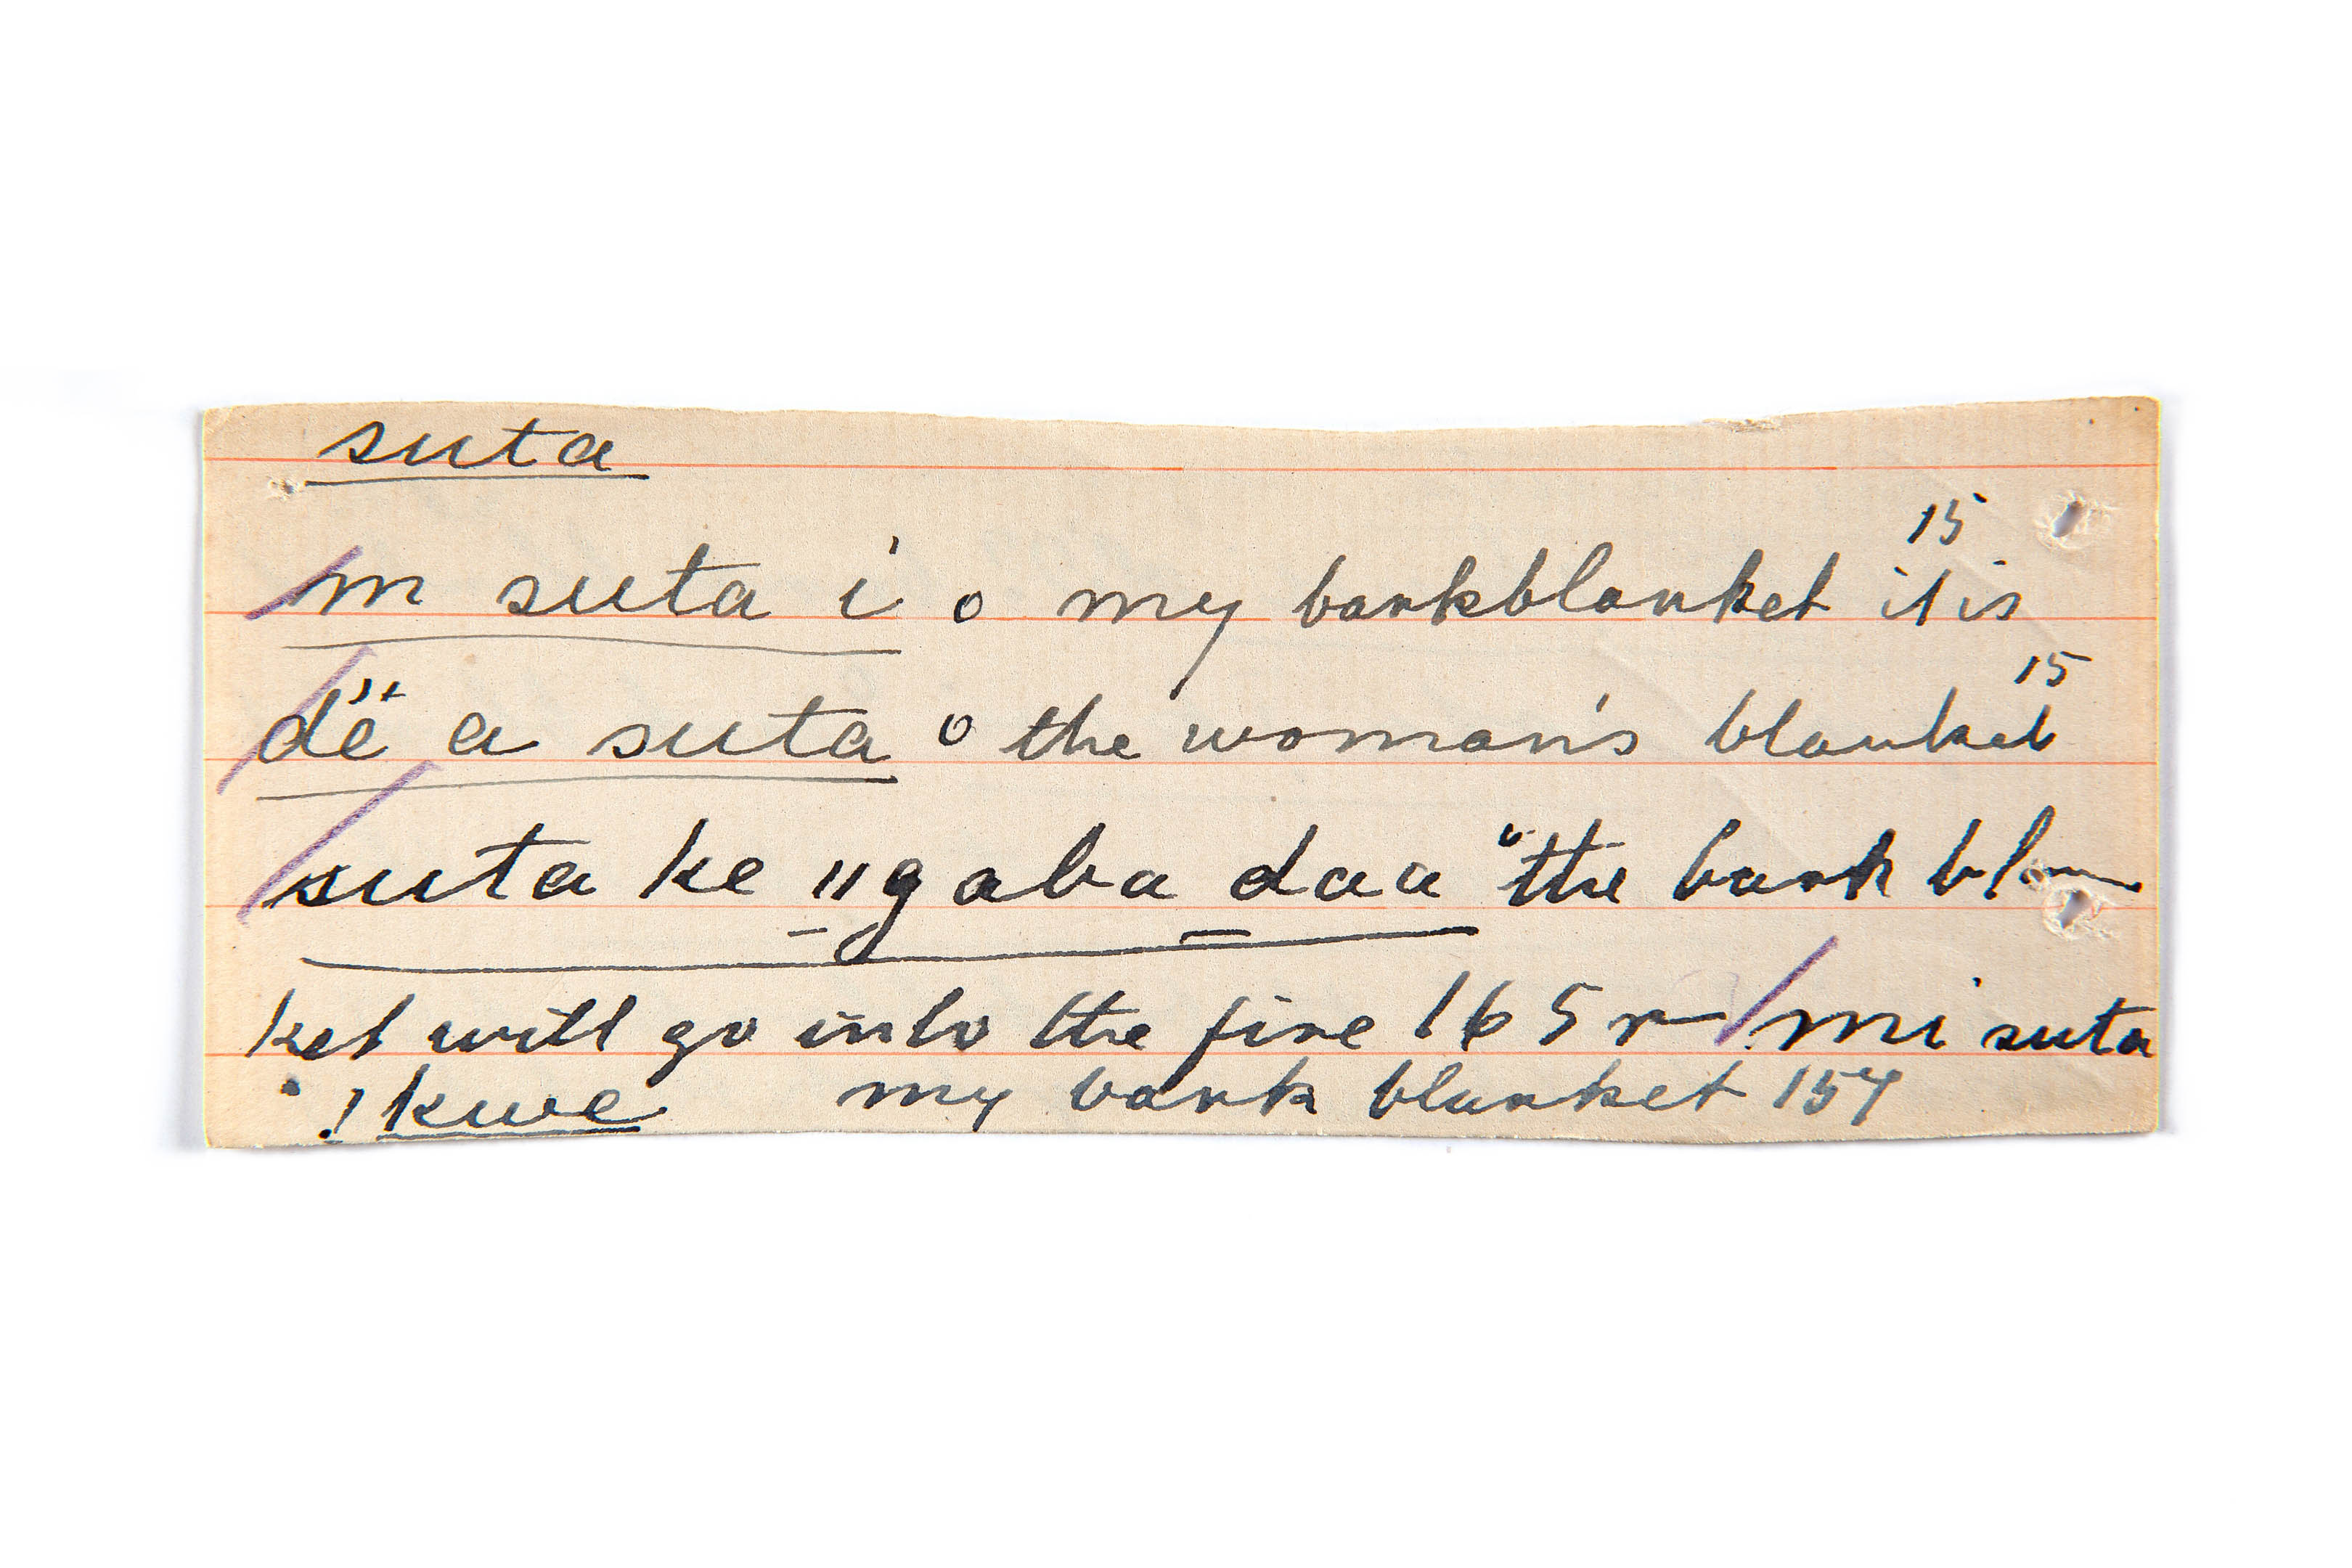 suta
15
m suta i o my barkblanket it is
15
dë a suta o the woman's blanket
suta ke ǁgaba daa "the bark blan
ket will go into the fire 165 r mi suta
!kwe my bark blanket 154